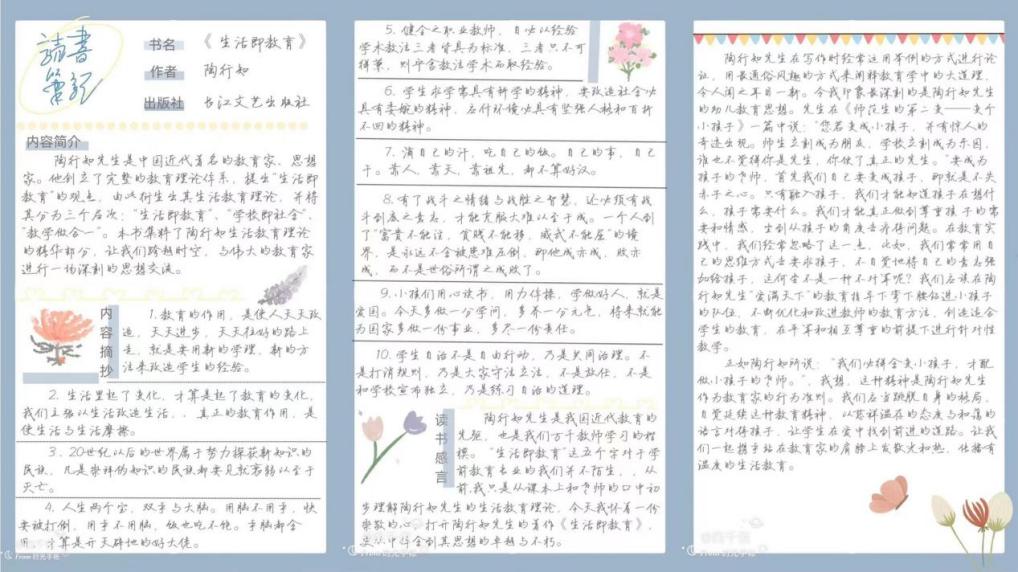 读书笔记
书名 《生活即教育》
作者 陶行知
出版社 长江文艺出版社
内容简介
陶行知先生是中国近代著名的教育家、思想
家。他创立了完整的教育理论体系，提出"生活即
教育"的观点，由此衍生出其生活教育理论，并将
其分为三个层次："生活即教育"、"学校即社会"、
"教学做合一"。本书集粹了陶行知生活教育理论
的精华部分，让我们跨越时空，与伟大的教育家
进行一场深刻的思想交流。
内容摘抄
1.教育的作用，是使人天天改
造，天天进步，天天往好的路上
走，就是要用新的学理，新的方
法来改造学生的经验。
2.生活里起了变化，才算是起了教育的变化，
我们主张以生活改造生活，、真正的教育作用，是
使生活与生活摩擦。
3.20世纪以后的世界属于努力探获新知识的
民族，凡是崇拜的知识的民族都要见就衰弱以至于
灭亡。
4.人生两个宝，双手与大脑。用脑不用手，快
要被打倒，用手不用脑，饭也吃不饱。手脑都会
用，才算是开天辟地的好大佬。
5.健全之职业教师，自必以经验
学术教法三者皆具为标准，三者只不可
得兼，则宁舍教法学术而取经验。
6.学生求学需具有科学的精神，要改造社会必
具有委婉的精神，应付环境必具有坚强人格和百折
不回的精神。
7.滴自己的汗，吃自己的饭。自己的事，自己
干。靠人、靠天、靠祖先，都不算好汉。
8.有了战斗之情绪与战胜之智慧，还必须有战
斗到底之意志，才能克服大难以至于成。一个人到
了"富贵不能淫，贫贱不能移，威武不能屈"的境
界，是永远不会被患难压倒，即他成亦成，败亦
成，而不是世俗所谓之成败了。
9.小孩们用心读书，用力体操，学做好人，就是
爱国。今天多做一分学问，多养一分元气，将来就能
为国家多做一份事业，多尽一份责任。
10.学生自治不是自由行动，乃是共同治理。不
是打消规则，乃是大家守法立法，不是放任，不是
和学校宣布独立，乃是练习自治的道理。
读书感言
陶行知先生是我国近代教育的
先驱，也是我们万千教师学习的楷
模。"生活即教育"这五个字对于学
前教育专业的我们并不陌生，、从
前，我只是从课本上和老师的口中初
步理解陶行知先生的生活教育理论，今天我怀着一份
崇敬的心，打开陶行知先生的著作《生活即教育》，
更从中体会到其思想的卓越与不朽。
陶行知先生在写作时经常运用举例的方式进行论
证，用最通俗风趣的方式来阐释教育学中的大道理，
令人闻之耳目一新。令我印象最深刻的是陶行知先生
的幼儿教育思想。先生在《师范生的第二变——变个
小孩子》一篇中说："您若变成小孩子，并有惊人的
奇迹出现。师生立刻成为朋友，学校立刻成为乐园，
谁也不觉得你是先生，你便了真正的先生。"要成为
孩子的老师，首先我们自己要变成孩子，那就是不失
赤子之心。只有融入孩子，我们才能知道孩子在想什
么，孩子需要什么。我们才能真正做到尊重孩子的需
要和情感，坐到从孩子的角度去看待问题。在教育实
践中，我们经常忽略了这一点，比如，我们常常用自
己的思维方式去要求孩子，不自觉地将自己的意志强
加给孩子，这何尝不是一种不对等呢？我们应该在陶
行知先生"爱满天下"的教育指导下弯下腰钻进小孩子
的队伍，不断优化和改进教师的教育方法，创造适合
学生的教育，在平等和相互尊重的前提下进行针对性
教学。
正如陶行知所说："我们必得会变小孩子，才配
做小孩子的老师。"，我想，这种精神是陶行知先生
作为教育家的行为准则。我们应当跳脱自身的格局，
自觉延续这种教育精神，以慈祥温在的态度与和蔼的
语言对待孩子，让学生在爱中找到前进的道路。让我
们一起携手站在教育家的肩膀上发散光和热，传播有
温度的生活教育。
From 时光手帐